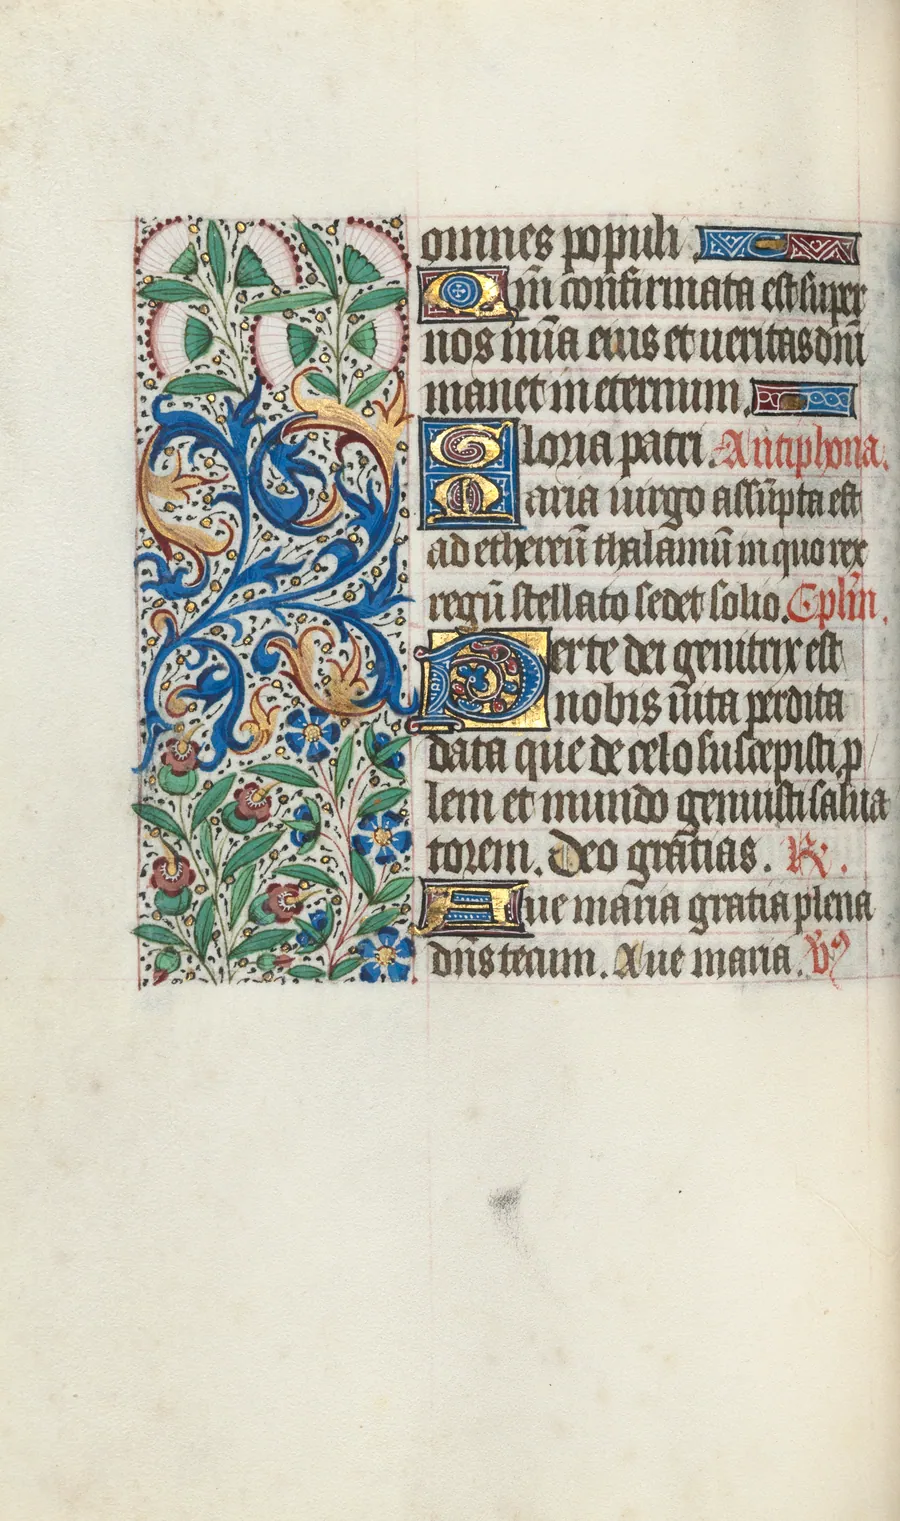 omnes populi
Qm̄ confirmata est super
nos mīa eius et ueritas dn̄i
manet in eternum.
Gloria patri. Antiphona.
Maria uirgo assūpta est
ad ethereū thalamū in quo rex
regū stellato sedet solio. Cplm̄.
Per te dei genitrix est
nobis uīta perdita
data que de celo suscepisti p
lem et mundo genuisti salua
torem. Deo grātias. R.
Aue maria gratia plena
dn̄s tecum. Aue maria. V9